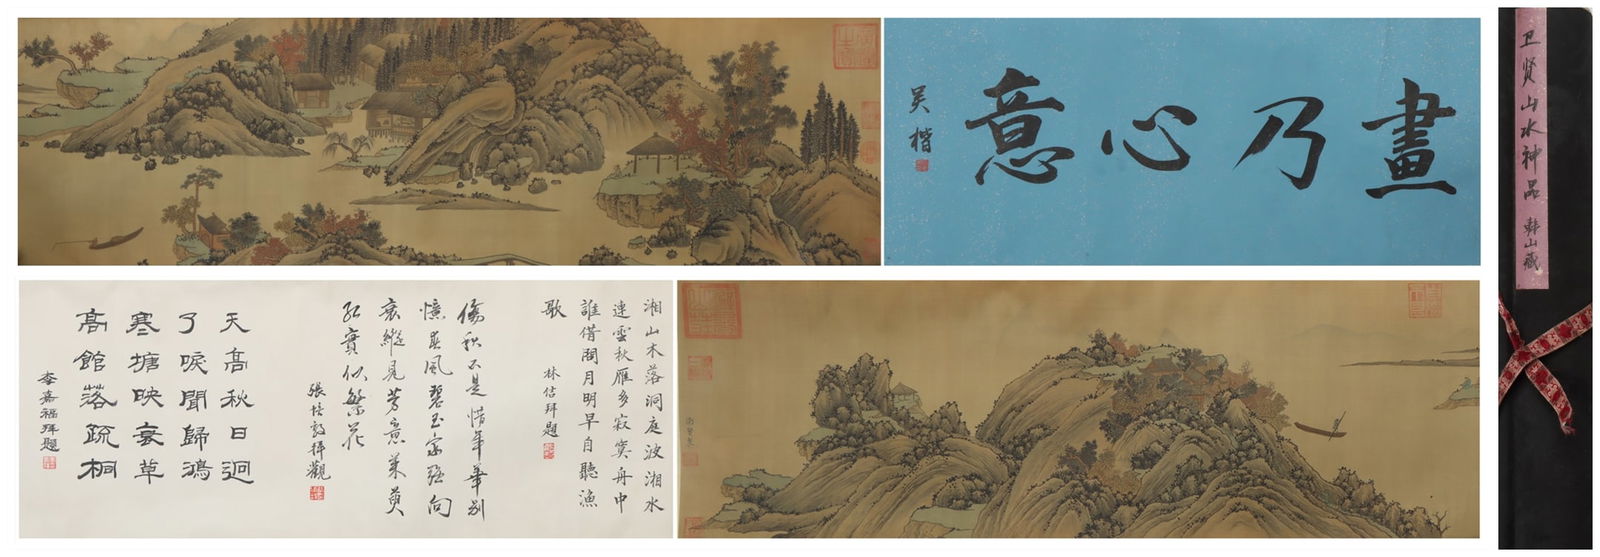 畫乃心意
吳楷
卫贤山水神品
韩山藏
湘山木落洞庭波湘水
連雲秋雁多寂寞舟中
誰借問月明早自聽漁
歌
林佶拜題
傷秋不是惜年華別
憶春風碧玉家強向
衰叢見芳意茱萸
紅實似繁花
張培敦拜觀
天高秋日迥
了唳聞歸鴻
寒塘映衰草
高館落疏桐
李嘉福拜題
衛賢製